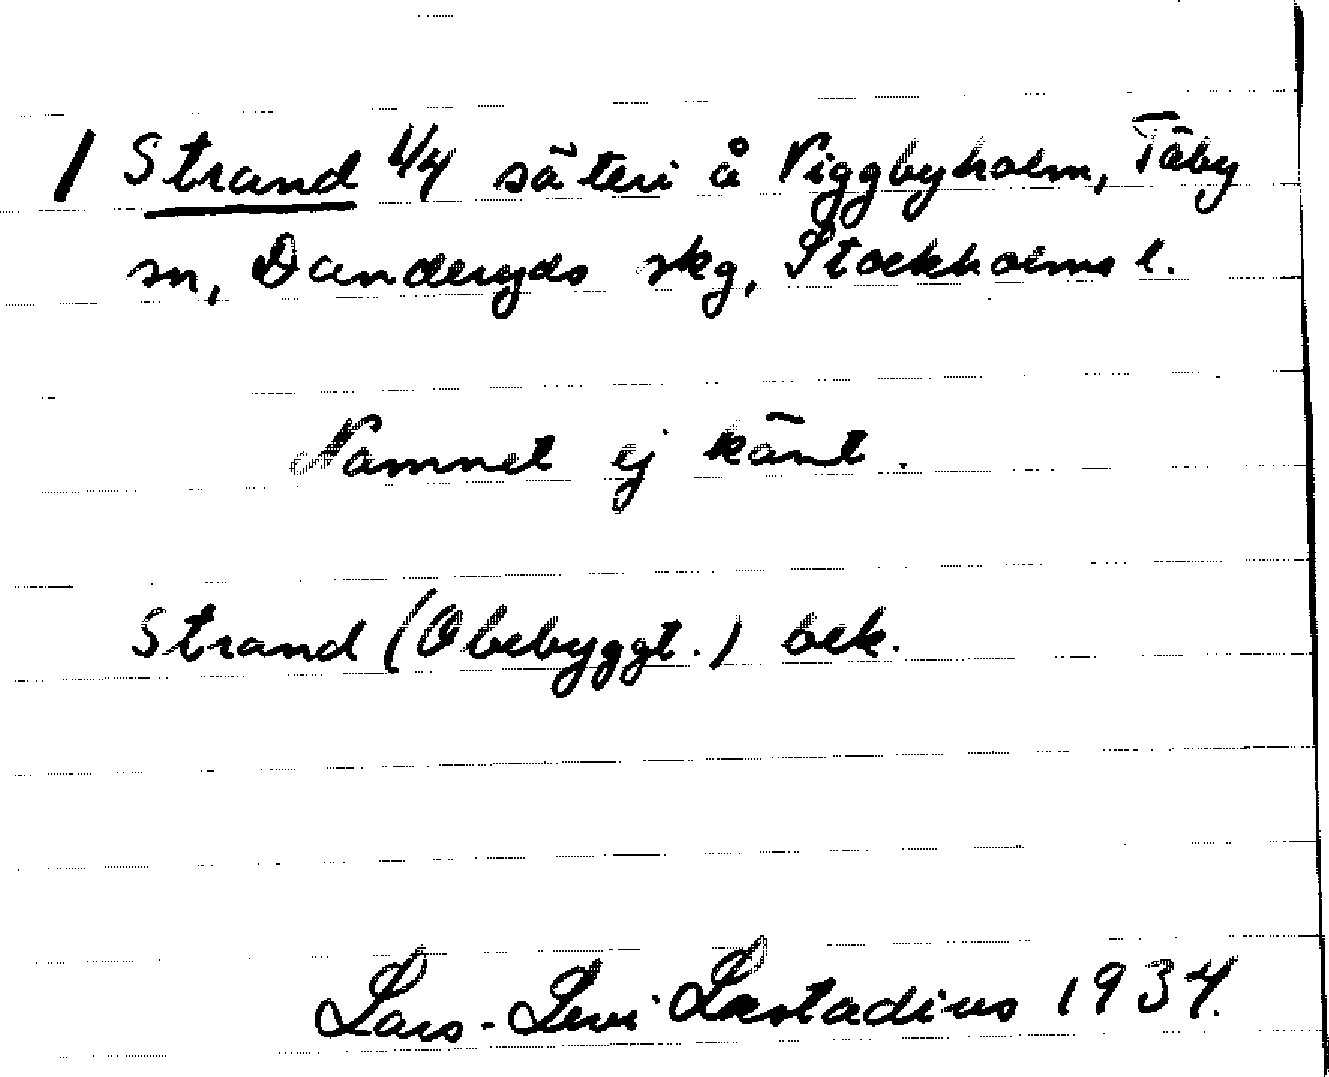 / Strand 1/4 säteri å Viggbyholm, Täby
sn, Danderyds skg, Stockholms l.
Namnet ej känt.
Strand (Obebyggt.) bek.
Lars-Levi Læstadius 1934.